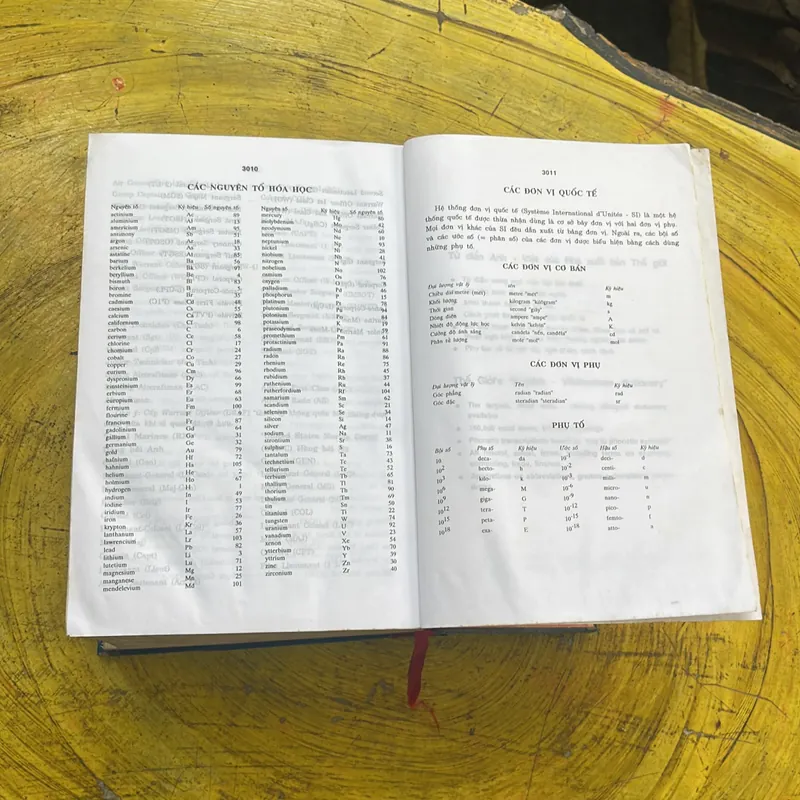 3010
CÁC NGUYÊN TỐ HÓA HỌC
Nguyên tố Ký hiệu Số nguyên tố
actinium Ac 89
aluminium Al 13
americium Am 95
antimony Sb 51
argon Ar 18
arsenic As 33
astatine At 85
barium Ba 56
berkelium Bk 97
beryllium Be 4
bismuth Bi 83
boron B 5
bromine Br 35
cadmium Cd 48
caesium Cs 55
calcium Ca 20
californium Cf 98
carbon C 6
cerium Ce 58
chlorine Cl 17
chromium Cr 24
cobalt Co 27
copper Cu 29
curium Cm 96
dysprosium Dy 66
einsteinium Es 99
erbium Er 68
europium Eu 63
fermium Fm 100
flourine F 9
francium Fr 87
gadolinium Gd 64
gallium Ga 31
germanium Ge 32
gold Au 79
hafnium Hf 72
hahnium Ha 105
helium He 2
holmium Ho 67
hydrogen H 1
indium In 49
iodine I 53
iridium Ir 77
iron Fe 26
krypton Kr 36
lanthanum La 57
lawrencium Lr 103
lead Pb 82
lithium Li 3
lutetium Lu 71
magnesium Mg 12
manganese Mn 25
mendelevium Md 101
Nguyên tố Ký hiệu Số nguyên tố
mercury Hg 80
molybdenum Mo 42
neodymium Nd 60
neon Ne 10
neptunium Np 93
nickel Ni 28
niobium Nb 41
nitrogen N 7
nobelium No 102
osmium Os 76
oxygen O 8
palladium Pd 46
phosphorus P 15
platinum Pt 78
plutonium Pu 94
polonium Po 84
potassium K 19
praseodymium Pr 59
promethium Pm 61
protactinium Pa 91
radium Ra 88
radon Rn 86
rhenium Re 75
rhodium Rh 45
rubidium Rb 37
ruthenium Ru 44
rutherfordium Rf 104
samarium Sm 62
scandium Sc 21
selenium Se 34
silicon Si 14
silver Ag 47
sodium Na 11
strontium Sr 38
sulphur S 16
tantalum Ta 73
technetium Tc 43
tellurium Te 52
terbium Tb 65
thallium Tl 81
thorium Th 90
thulium Tm 69
tin Sn 50
titanium Ti 22
tungsten W 74
uranium U 92
vanadium V 23
xenon Xe 54
ytterbium Yb 70
yttrium Y 39
zinc Zn 30
zirconium Zr 40
3011
CÁC ĐƠN VỊ QUỐC TẾ
Hệ thống đơn vị quốc tế (Système International d'Unités - SI) là một hệ
thống quốc tế được thừa nhận dùng là cơ sở bảy đơn vị với hai đơn vị phụ.
Mọi đơn vị khác của SI đều dẫn xuất từ bảng đơn vị. Ngoài ra, các bội số
và các ước số (= phân số) của các đơn vị được biểu hiện bằng cách dùng
những phụ tố.
CÁC ĐƠN VỊ CƠ BẢN
Đại lượng vật lý tên Ký hiệu
Chiều dài metre (mét) metre "mét" m
Khối lượng kilogram "kilôgram" kg
Thời gian second "giây" s
Dòng điện ampere "ampe" A
Nhiệt độ động lực học kelvin "kelvin" K
Cường độ ánh sáng candela "nến, candêla" cd
Phân tử lượng mole "mol" mol
CÁC ĐƠN VỊ PHỤ
Đại lượng vật lý Tên Ký hiệu
Góc phẳng radian "radian" rad
Góc đặc steradian "steradian" sr
PHỤ TỐ
Bội số Phụ tố Ký hiệu Ước số Hậu tố Ký hiệu
10 deca- da 10⁻¹ deci- d
10² hecto- h 10⁻² centi- c
10³ kilo- k 10⁻³ milli- m
10⁶ mega- M 10⁻⁶ micro- u
10⁹ giga- G 10⁻⁹ nano- n
10¹² tera- T 10⁻¹² pico- p
10¹⁵ peta- P 10⁻¹⁵ femto- f
10¹⁸ exa- E 10⁻¹⁸ atto- a